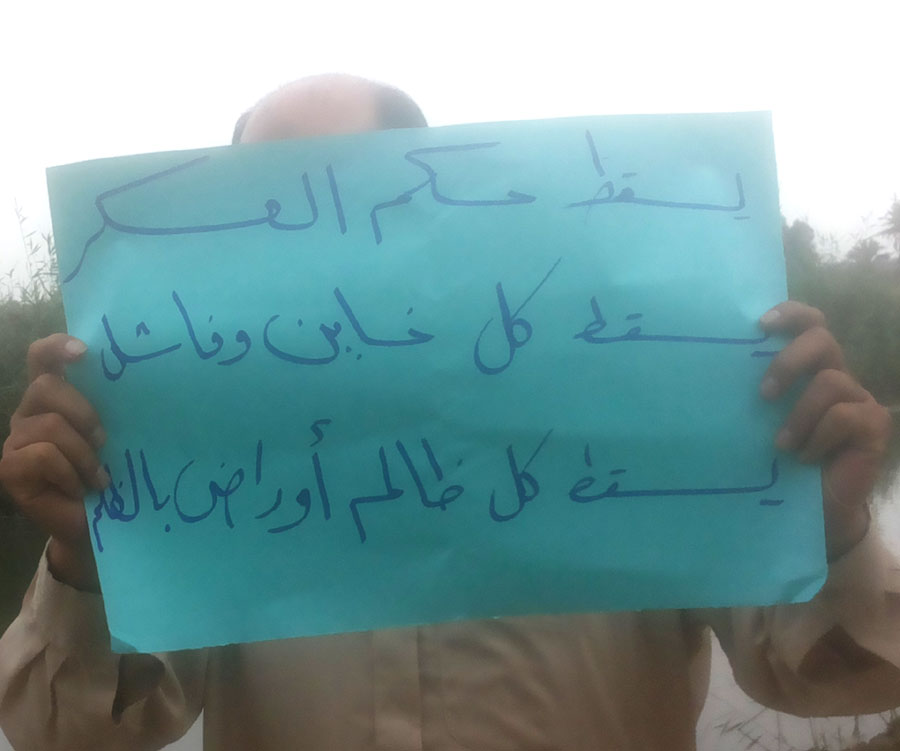 يسقط حكم العسكر
يسقط كل خاين وفاشل
يسقط كل ظالم أو راض بالظلم